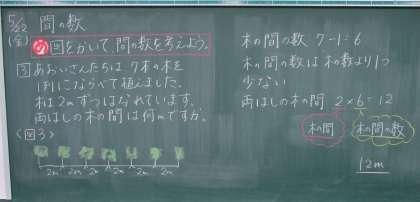 5/22 間の数
(金) め 図をかいて、間の数を考えよう。
③ あおいさんたちは、7本の木を
1列にならべて植えました。
木は2mずつはなれています。
両はしの木の間は何mですか。
〈図3〉
2m 2m 2m 2m 2m 2m
木の間の数 7-1=6
木の間の数は木の数より1つ
少ない
両はしの木の間 2×6=12
木の間 木の間の数
12m